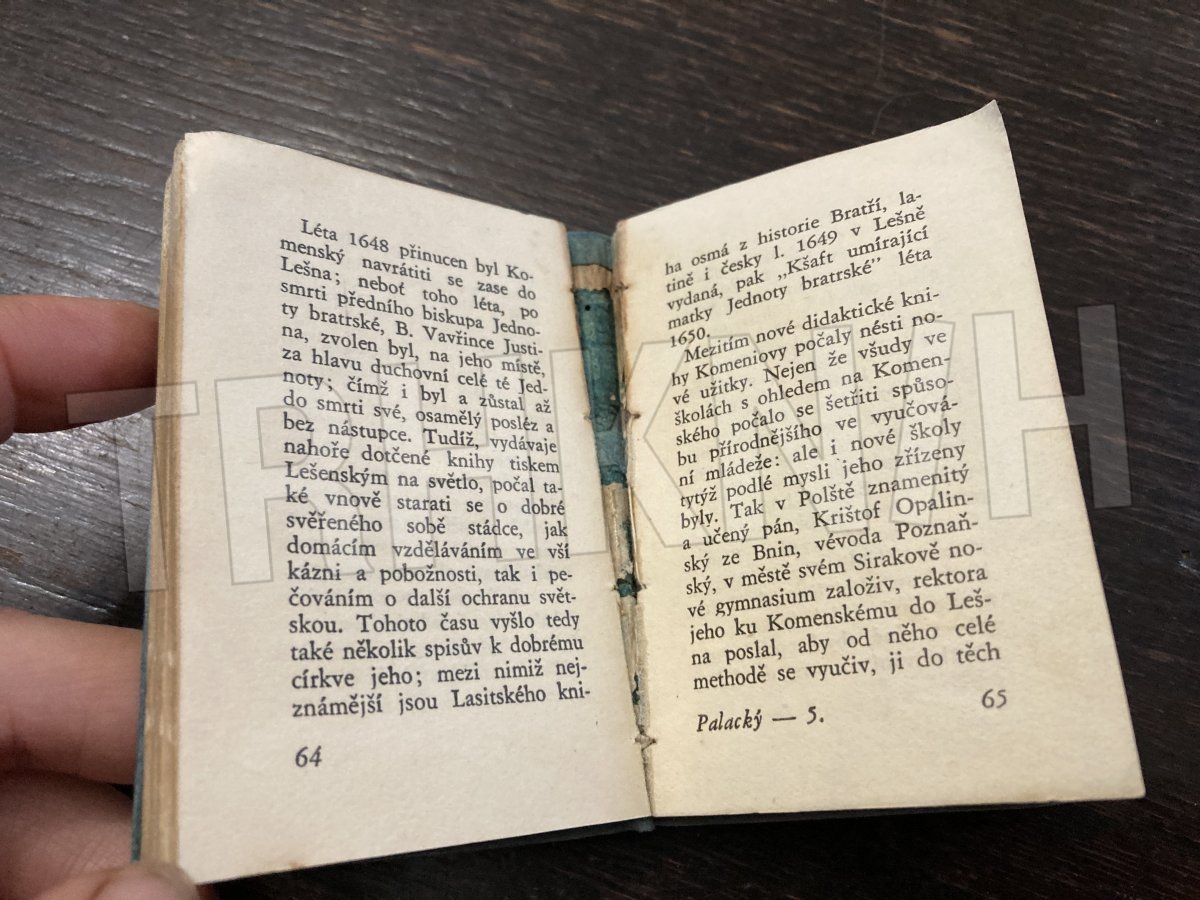 Léta 1648 přinucen byl Ko-
menský navrátiti se zase do
Lešna; neboť toho léta, po
smrti předního biskupa Jedno-
ty bratrské, B. Vavřince Justi-
na, zvolen byl, na jeho místě,
za hlavu duchovní celé té Jed-
noty; čímž i byl a zůstal až
do smrti své, osamělý posléz a
bez nástupce. Tudíž, vydávaje
nahoře dotčené knihy tiskem
Lešenským na světlo, počal ta-
ké vnově starati se o dobré
svěřeného sobě stádce, jak
domácím vzděláváním ve vší
kázni a pobožnosti, tak i pe-
čováním o další ochranu svět-
skou. Tohoto času vyšlo tedy
také několik spisův k dobrému
církve jeho; mezi nimiž nej-
známější jsou Lasitského kni-
64
ha osmá z historie Bratří, la-
tině i česky l. 1649 v Lešně
vydaná, pak „Kšaft umírající
matky Jednoty bratrské" léta
1650.
Mezitím nové didaktické kni-
hy Komeniovy počaly nésti no-
vé užitky. Nejen že všudy ve
školách s ohledem na Komen-
ského počalo se šetřiti spůso-
bu přírodnějšího ve vyučová-
ní mládeže: ale i nové školy
tytýž podlé mysli jeho zřízeny
byly. Tak v Polště znamenitý
a učený pán, Krištof Opalin-
ský ze Bnin, vévoda Poznaň-
ský, v městě svém Sirakově no-
vé gymnasium založiv, rektora
jeho ku Komenskému do Leš-
na poslal, aby od něho celé
methodě se vyučiv, ji do těch
Palacký — 5.
65
TREKNIH